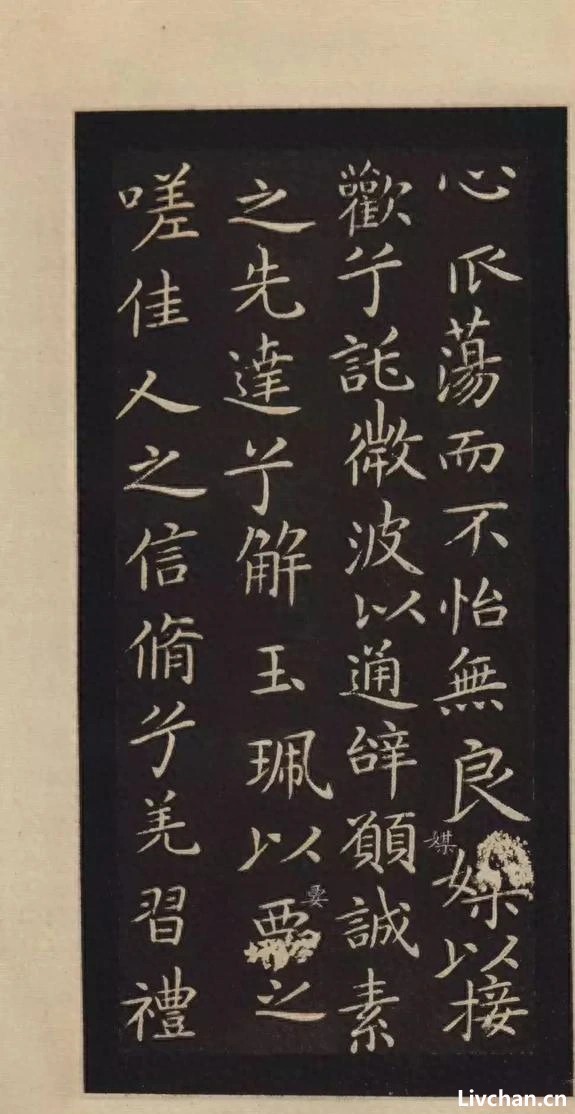 心蕩而不怡無良媒以接
媒
歡兮託微波以通辝願誠素
之先達兮解玉珮以要之
要
嗟佳人之信脩兮羌習禮
Livchan.cn